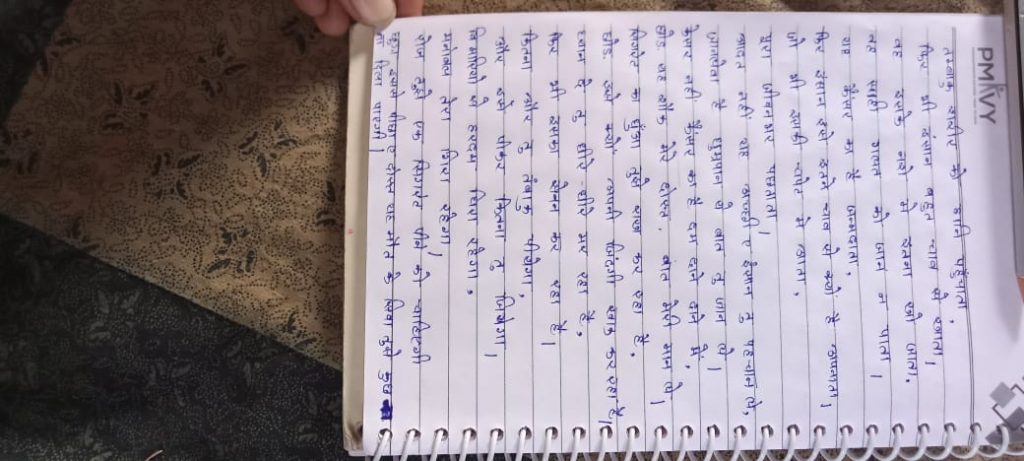 PMKVY
तम्बाकु शरीर को हानि पहुंचाता,
फिर भी इंसान बहुत चाव से खाता।
वह इसके नशे में इतना खो जाता,
वह सही गलत को जान न पाता।
यह कैंसर का है जन्मदाता,
फिर इंसान इसे इतने चाव से क्यों है अपनाता।
जो भी इसकी चपेट में आता,
पूरा जीवनभर पछताता।
आदत नहीं यह अच्छी ए इंसान तु पहचान ले,
जानलेवा है धुम्रपान ये बात तु जान ले।
कैंसर नहीं कैंसर का है दम दाने दाने में,
छोड़ यह शौक मेरे दोस्त, बात मेरी मान ले।
सिगरेट का धुंआ तुझे राख कर रहा है,
छोड़ इसे क्यों अपनी जिंदगी बरबाद कर रहा है,
श्मशान है तु धीरे-धीरे मर रहा है,
फिर भी इसका सेवन कर रहा है।
जितना और तु तंबाकु पीयेगा,
और इसे पीकर कितना तु जियेगा।
बिमारियों से हरदम घिरा रहेगा,
मनोबल तेरा गिरा रहेगा।
रोज तुझे एक सिगरेट पीने को चाहिएगी
कुछ इसमें मेरे दोस्त यह मौत के सिवा तुझे कुछ
ना दिला पाएगी।